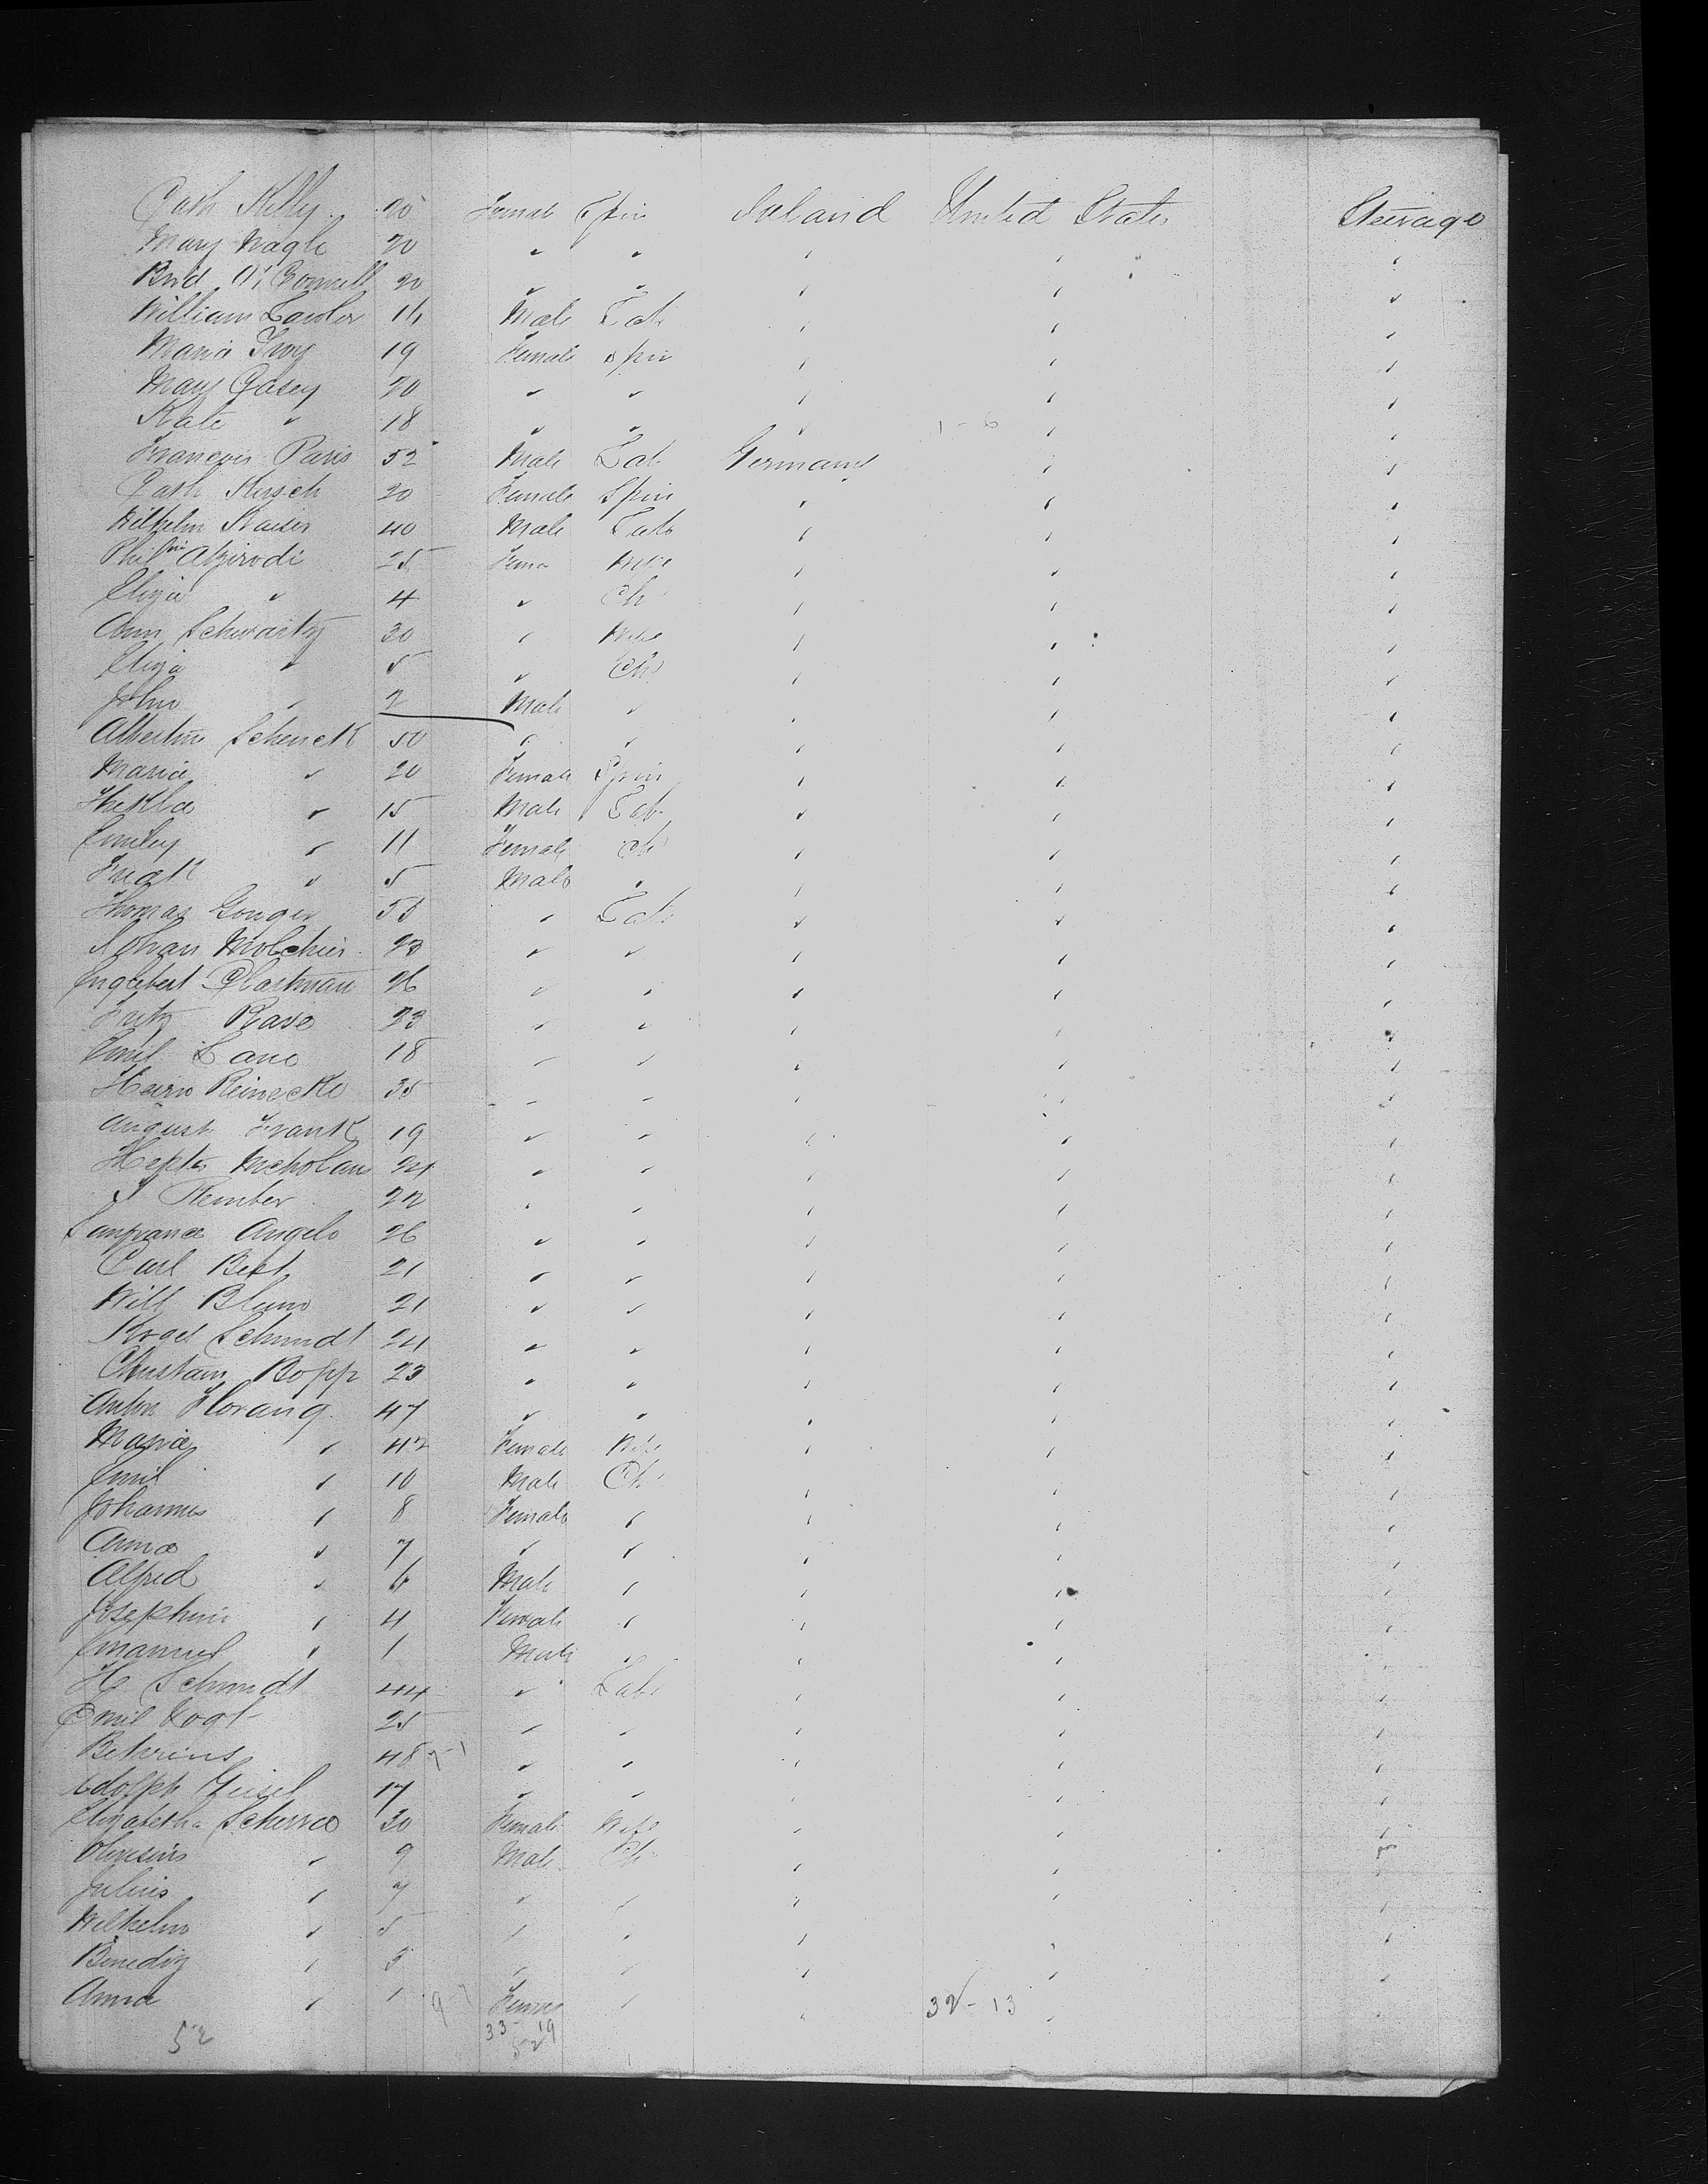 Cath Kelly 20 Female Spin Ireland United States Steerage
Mary Nagle 20 " " " " "
Brid O'Connell 20 " " " " "
William Lawler 16 Male Lab " " "
Maria Troy 19 Female Spin " " "
Mary Casey 20 " " " " "
Kate " 18 " " " 1-6 " "
Francois Paris 52 Male Lab Germany " "
Cath Kirsch 20 Female Spin " " "
Wilhelm Kaiser 40 Male Lab " " "
25 Fema Wife " " "
Eliza " 4 " Ch " " "
Ann Schwartz 30 " Wife " " "
Eliza " 5 " Ch " " "
John " 2 Male " " " "
Albertine Schenck 50 " " " " "
Maria " 20 Female Spin " " "
Thekla " 15 Male Lab " " "
Emiley " 11 Female Ch " " "
" 5 Male " " " "
Thomas Gonger 55 " Lab " " "
Johan 23 " " " " "
26 " " " " "
Fritz Rave 23 " " " " "
Emil Lano 18 " " " " "
Reinecke 35 " " " " "
August Frank 19 " " " " "
24 " " " " "
22 " " " " "
Angelo 26 " " " " "
Carl Best 21 " " " " "
Will Blum 21 " " " " "
Schmidt 24 " " " " "
Christain Bopp 23 " " " " "
Anton Horang 47 " " " " "
Maria " 42 Female Wife " " "
Emil " 10 Male Ch " " "
Johannes " 8 Female " " " "
Anna " 7 " " " " "
Alfred " 6 Male " " " "
Josephine " 4 Female " " " "
Emanuel " 1 Male " " " "
H Schmidt 44 " Lab " " "
Emil Vogt 25 " " " " "
Behrens 48 " " " " "
Adolph Giesel 17 " " " " "
Elizabetha 30 Female Wife " " "
" 9 Male Ch " " "
Julius " 7 " " " " "
Wilhelm " 5 " " " " "
Benediz " 3 " " " " "
Anna " 1 Female " " 32-13 " "
52 33 19
52